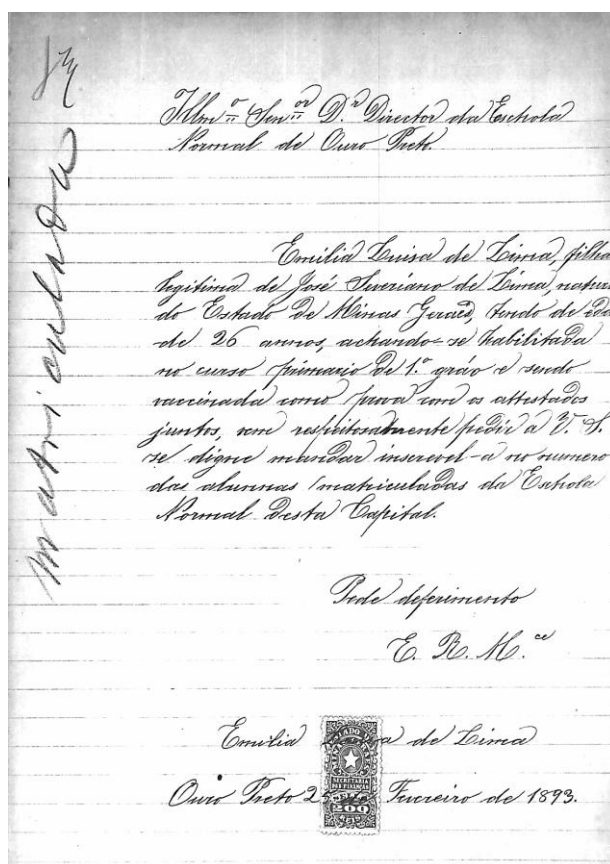 matriculada
Illmº Snrºr D.r Director da Eschola
Normal de Ouro Preto.
Emilia Luisa de Lima, filha
legitima de José Severiano de Lima, natur
do Estado de Minas Geraes, tendo de eda
de 26 annos, achando-se habilitada
no curso primario de 1.º gráo e sendo
vaccinada como prova com os attestados
juntos, vem respeitosamente pedir a V. S.
se digne mandar inscrevel-a no numero
das alumnas matriculadas da Eschola
Normal desta Capital.
Pede deferimento
E. R. M.ce
Emilia Luisa de Lima
SECRETARIA
DAS FINANÇAS
200
Ouro Preto 25 de Fevereiro de 1893.